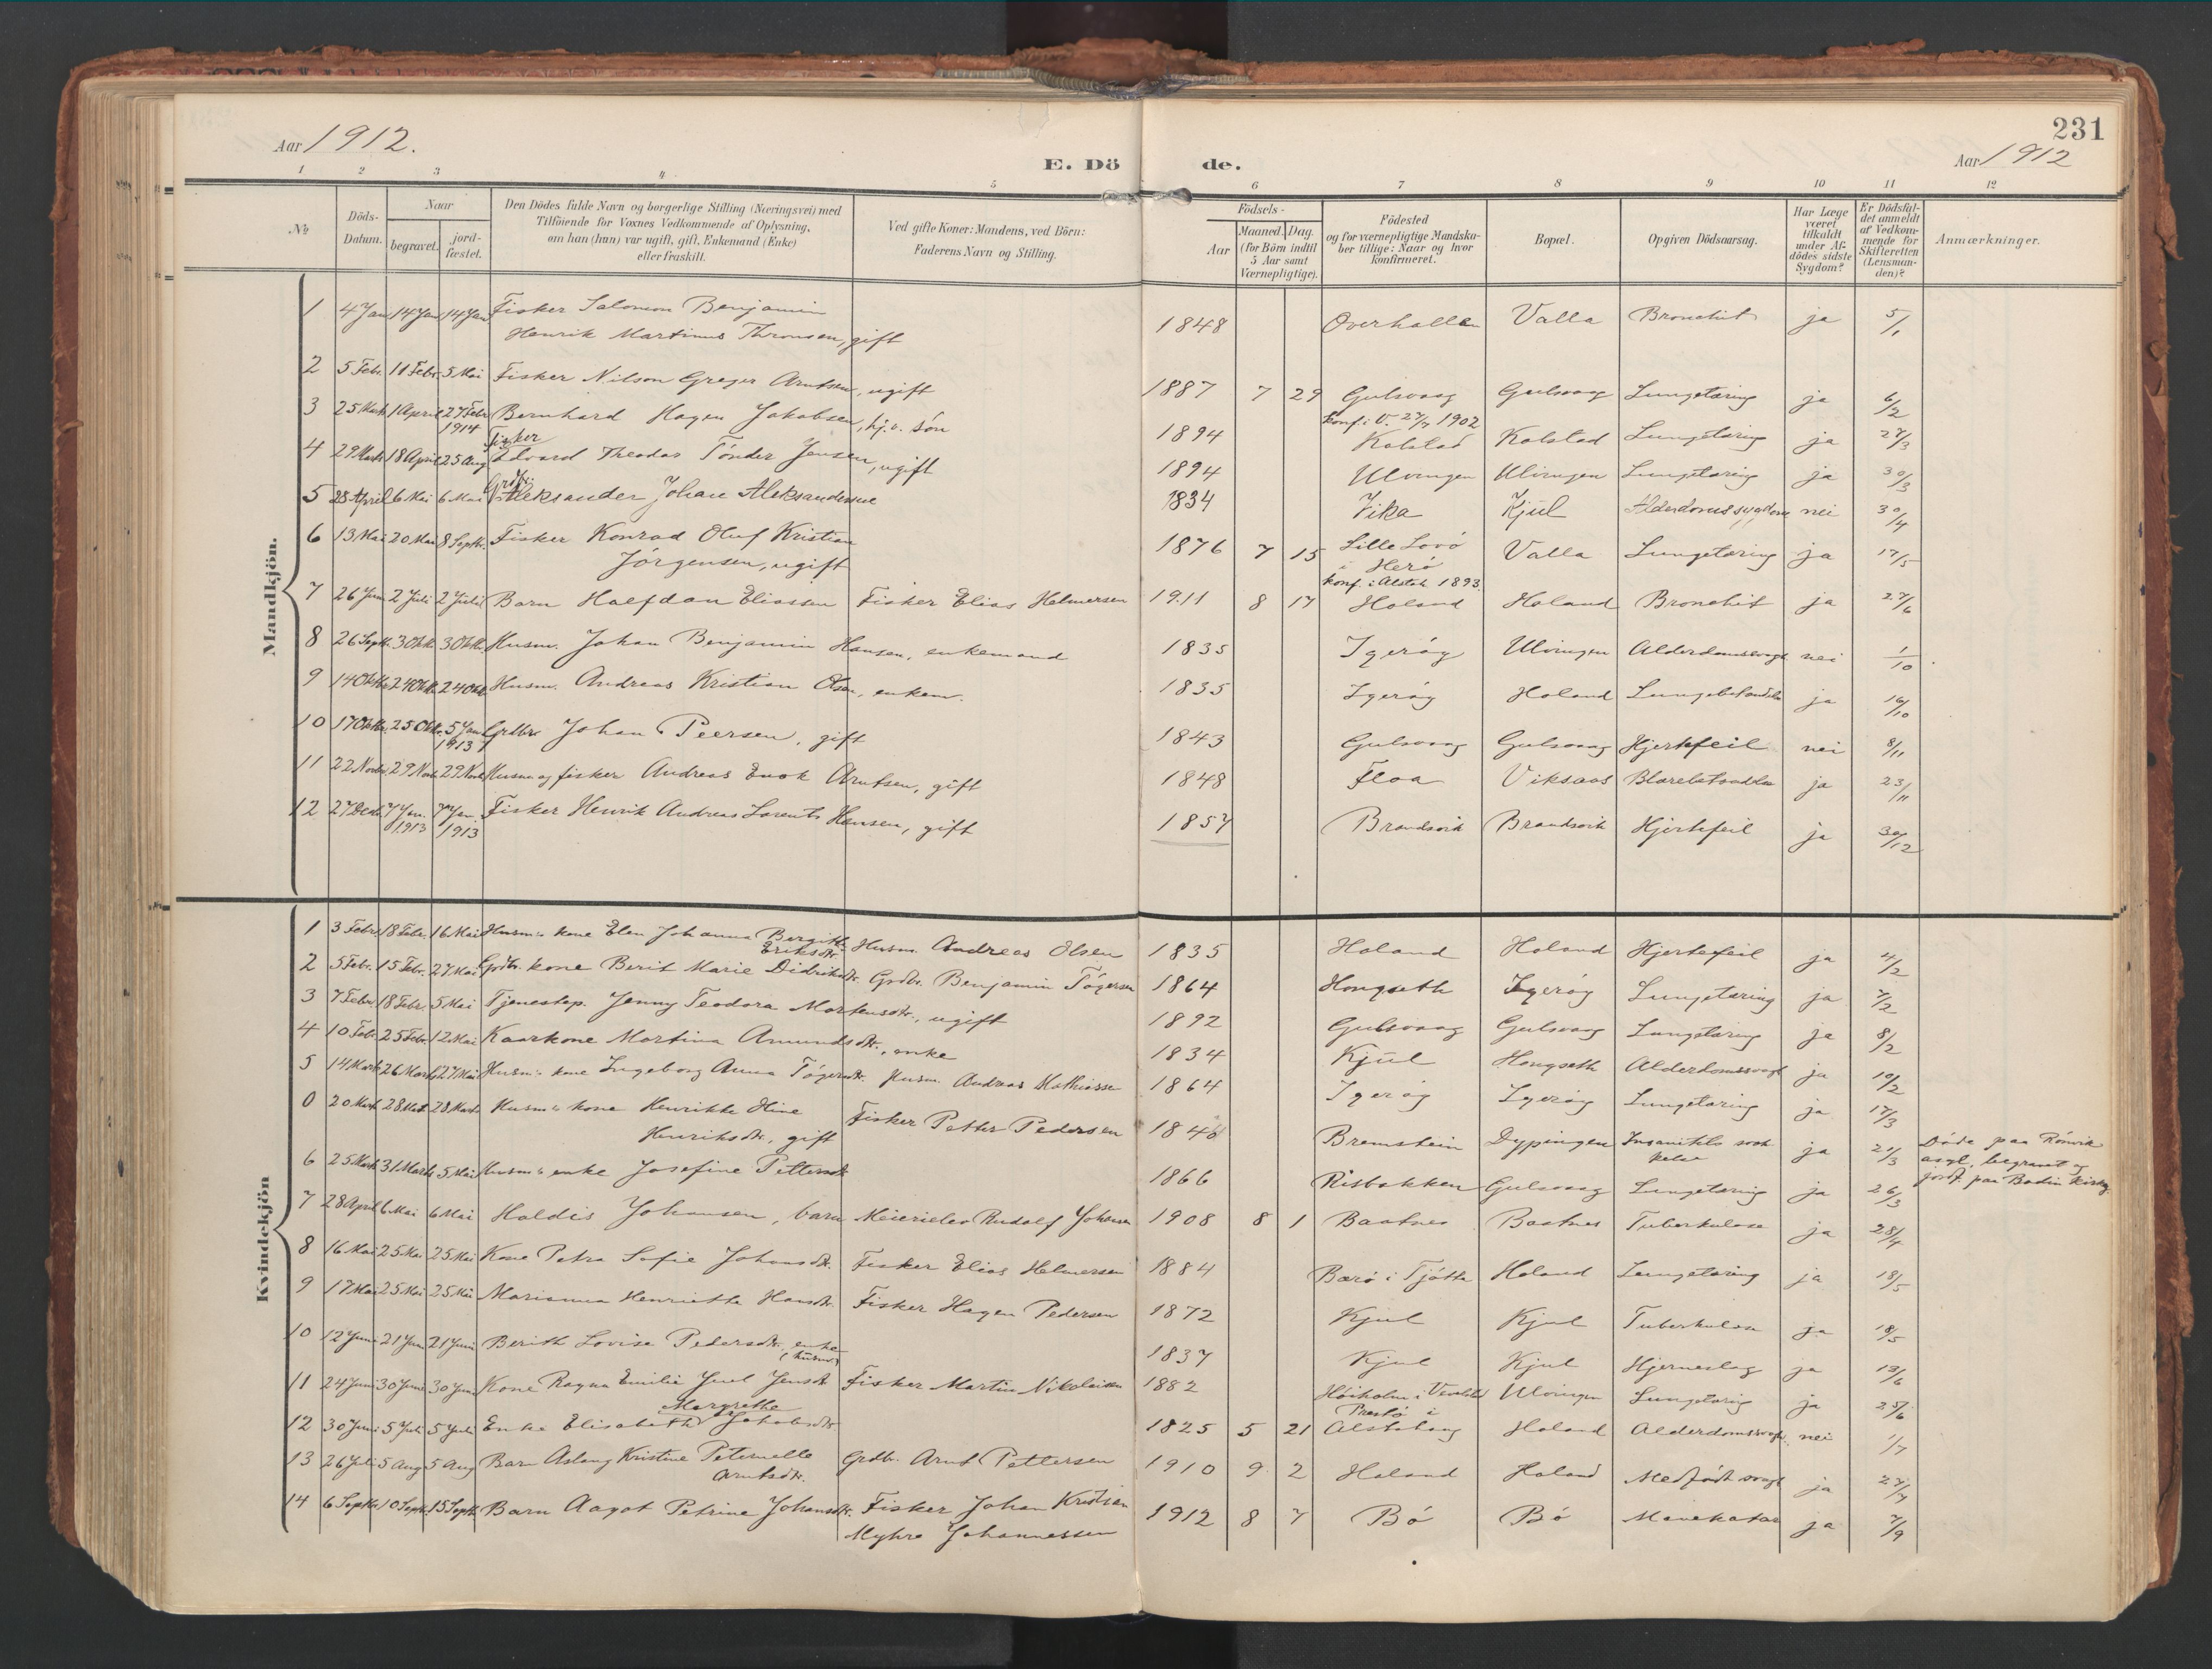 231
Aar 1912.
E. Dö de.
Aar 1912
1 2 3 4 5 6 7 8 9 10 11 12
No
Döds-Datum.
Naar
begravet.
jord-fæstet.
Den Dödes fulde Navn og borgerlige Stilling (Næringsvei) med
Tilföiende for Voxnes Vedkommende af Oplysning,
om han (hun) var ugift, gift, Enkemand (Enke)
eller fraskilt.
Ved gifte Koner: Mandens, ved Börn:
Faderens Navn og Stilling.
Födsels-
Aar
Maaned. Dag.
(for Börn indtil
5 Aar samt
Værnepligtige).
Födested
og for værnepligtige Mandska-
ber tillige: Naar og hvor
konfirmeret.
Bopæl.
Opgiven Dödsaarsag.
Har Læge
været
tilkaldt
under Af-
dödes sidste
Sygdom?
Er Dödsfal-
det anmeldt
af Vedkom-
mende for
Skifteretten
(Lensman-
den)?
Anmærkninger.
Mandkjön.
1 4 Jan 14 Jan 14 Jan Fisker Salomon Benjamin
Henrik Martinus Thronsen, gift 1848 Overhallen Valla Bronchit ja 5/1
2 5 Febr. 11 Febr. 5 Mai Fisker Nilson Greger Arntsen, ugift 1887 7 29 Gulsvaag Gulsvaag Lungetæring ja 6/2
konf. i V. 27/7 1902
3 25 Marts 1 April 27 Febr 1914 Bernhard Hagen Jakobsen, hj.v. sön 1894 Kolstad Kolstad Lungetæring ja 27/3
4 29 Marts 18 April 25 Aug Fisker Edvard Theodor Tönder Jensen, ugift 1894 Ulvingen Ulvingen Lungetæring ja 30/3
5 28 April 6 Mai 6 Mai Aleksander Johan Aleksandersen 1834 Vika Kjul Alderdomssygdom nei 30/4
6 13 Mai 20 Mai 8 Septbr. Fisker Konrad Oluf Kristian
Jörgensen, ugift 1876 7 15 Lille Lovö
i Herö
konf. i Alstah. 1893 Valla Lungetæring ja 17/5
7 26 Juni 2 Juli 2 Juli Barn Halfdan Eliassen Fisker Elias Helmersen 1911 8 17 Holand Holand Bronchit ja 27/6
8 26 Septb. 3 Oktb. 3 Oktb. Husm. Johan Benjamin Hansen, enkemand 1835 Igeröy Ulvingen Alderdomssvagh. nei 1/10
9 14 Oktbr 24 Oktb. 24 Oktb. Husm. Andreas Kristian Olsen, enkem. 1835 Igeröy Holand Lungebetændelse ja 16/10
10 17 Oktbr. 25 Oktbr. 5 Jan 1913 Grdbr. Johan Peersen, gift 1843 Gulsvaag Gulsvaag Hjertefeil nei 8/11
11 22 Novbr 29 Novb 29 Novb Husm og fisker Andreas Enok Arntsen, gift 1848 Floa Viksaas Blærebetændelse ja 23/11
12 27 Decb. 7 Jan. 1913 7 Jan. 1913 Fisker Henrik Andreas Lorents Hansen, gift 1857 Brandsvik Brandsvik Hjertefeil ja 30/12
Kvindekjön
1 3 Febr. 18 Febr. 16 Mai Husm.s kone Elen Johanna Bergitte
Eriksdtr. Husm. Andreas Olsen 1835 Holand Holand Hjertefeil ja 4/2
2 5 Febr. 15 Febr. 27 Mai Grdbr. kone Berit Marie Didriksdtr. Grdbr. Benjamin Tögersen 1864 Hongseth Igeröy Lungetæring ja 7/2
3 7 Febr. 18 Febr. 5 Mai Tjenestep. Jenny Teodora Mortensdtr., ugift 1892 Gulsvaag Gulsvaag Lungetæring ja 8/2
4 10 Febr. 25 Febr. 12 Mai Kaarkone Martina Amundsdtr., enke 1834 Kjul Hongseth Alderdomssvagh ja 10/2
5 14 Marts 26 Marts 27 Mai Husm.s kone Ingeborg Anna Tögersdtr. Husm. Andreas Mathiassen 1864 Igeröy Igeröy Lungetæring ja 17/3
0 20 Marts 28 Marts 28 Marts Husm.s kone Henrikke Hine
Henriksdtr., gift Fisker Petter Pedersen 1846 Bremstein Dypingen ja 21/3 Döde paa Rönvik
asyl, begravet og
jordf. paa Bodin Kirkeg.
6 25 Marts 31 Marts 5 Mai Husm.s enke Josefine Pettersdtr 1866 Risbakken Gulsvaag Lungetæring ja 26/3
7 28 April 6 Mai 6 Mai Haldis Johansen, barn Meierielev Rudolf Johansen 1908 8 1 Baatnes Baatnes Tuberkulose ja 28/4
8 16 Mai 25 Mai 25 Mai Kone Petra Sofie Johansdtr. Fisker Elias Helmersen 1884 Barö i Tjötta Holand Lungetæring ja 18/5
9 17 Mai 25 Mai 25 Mai Marianna Henriette Hansdtr. Fisker Hagen Pedersen 1872 Kjul Kjul Tuberkulose ja 18/5
10 12 Juni 21 Juni 21 Juni Berith Lovise Pedersdtr. enke
(husm.) 1837 Kjul Kjul Hjerneslag ja 13/6
11 24 Juni 30 Juni 30 Juni Kone Ragna Emilie Juel Jensdtr Fisker Martin Nikolaisen 1882 Höiholm i Vevelstad Ulvingen Lungetæring ja 25/6
12 30 Juni 5 Juli 5 Juli Enke Elisabeth Margrethe Jakobsdtr 1825 5 21 Prestö i
Alstahaug Holand Alderdomssvagh. nei 1/7
13 26 Juli 5 Aug 5 Aug Barn Aslaug Kristine Peternelle
Arntsdtr. Grdbr. Arnt Pettersen 1910 9 2 Holand Holand Medfödt svagh ja 27/7
14 6 Septbr. 10 Septb. 15 Septb. Barn Aagot Petrine Johansdtr. Fisker Johan Kristian
Myhre Johannessen 1912 8 7 Bö Bö Mavekatar ja 7/9